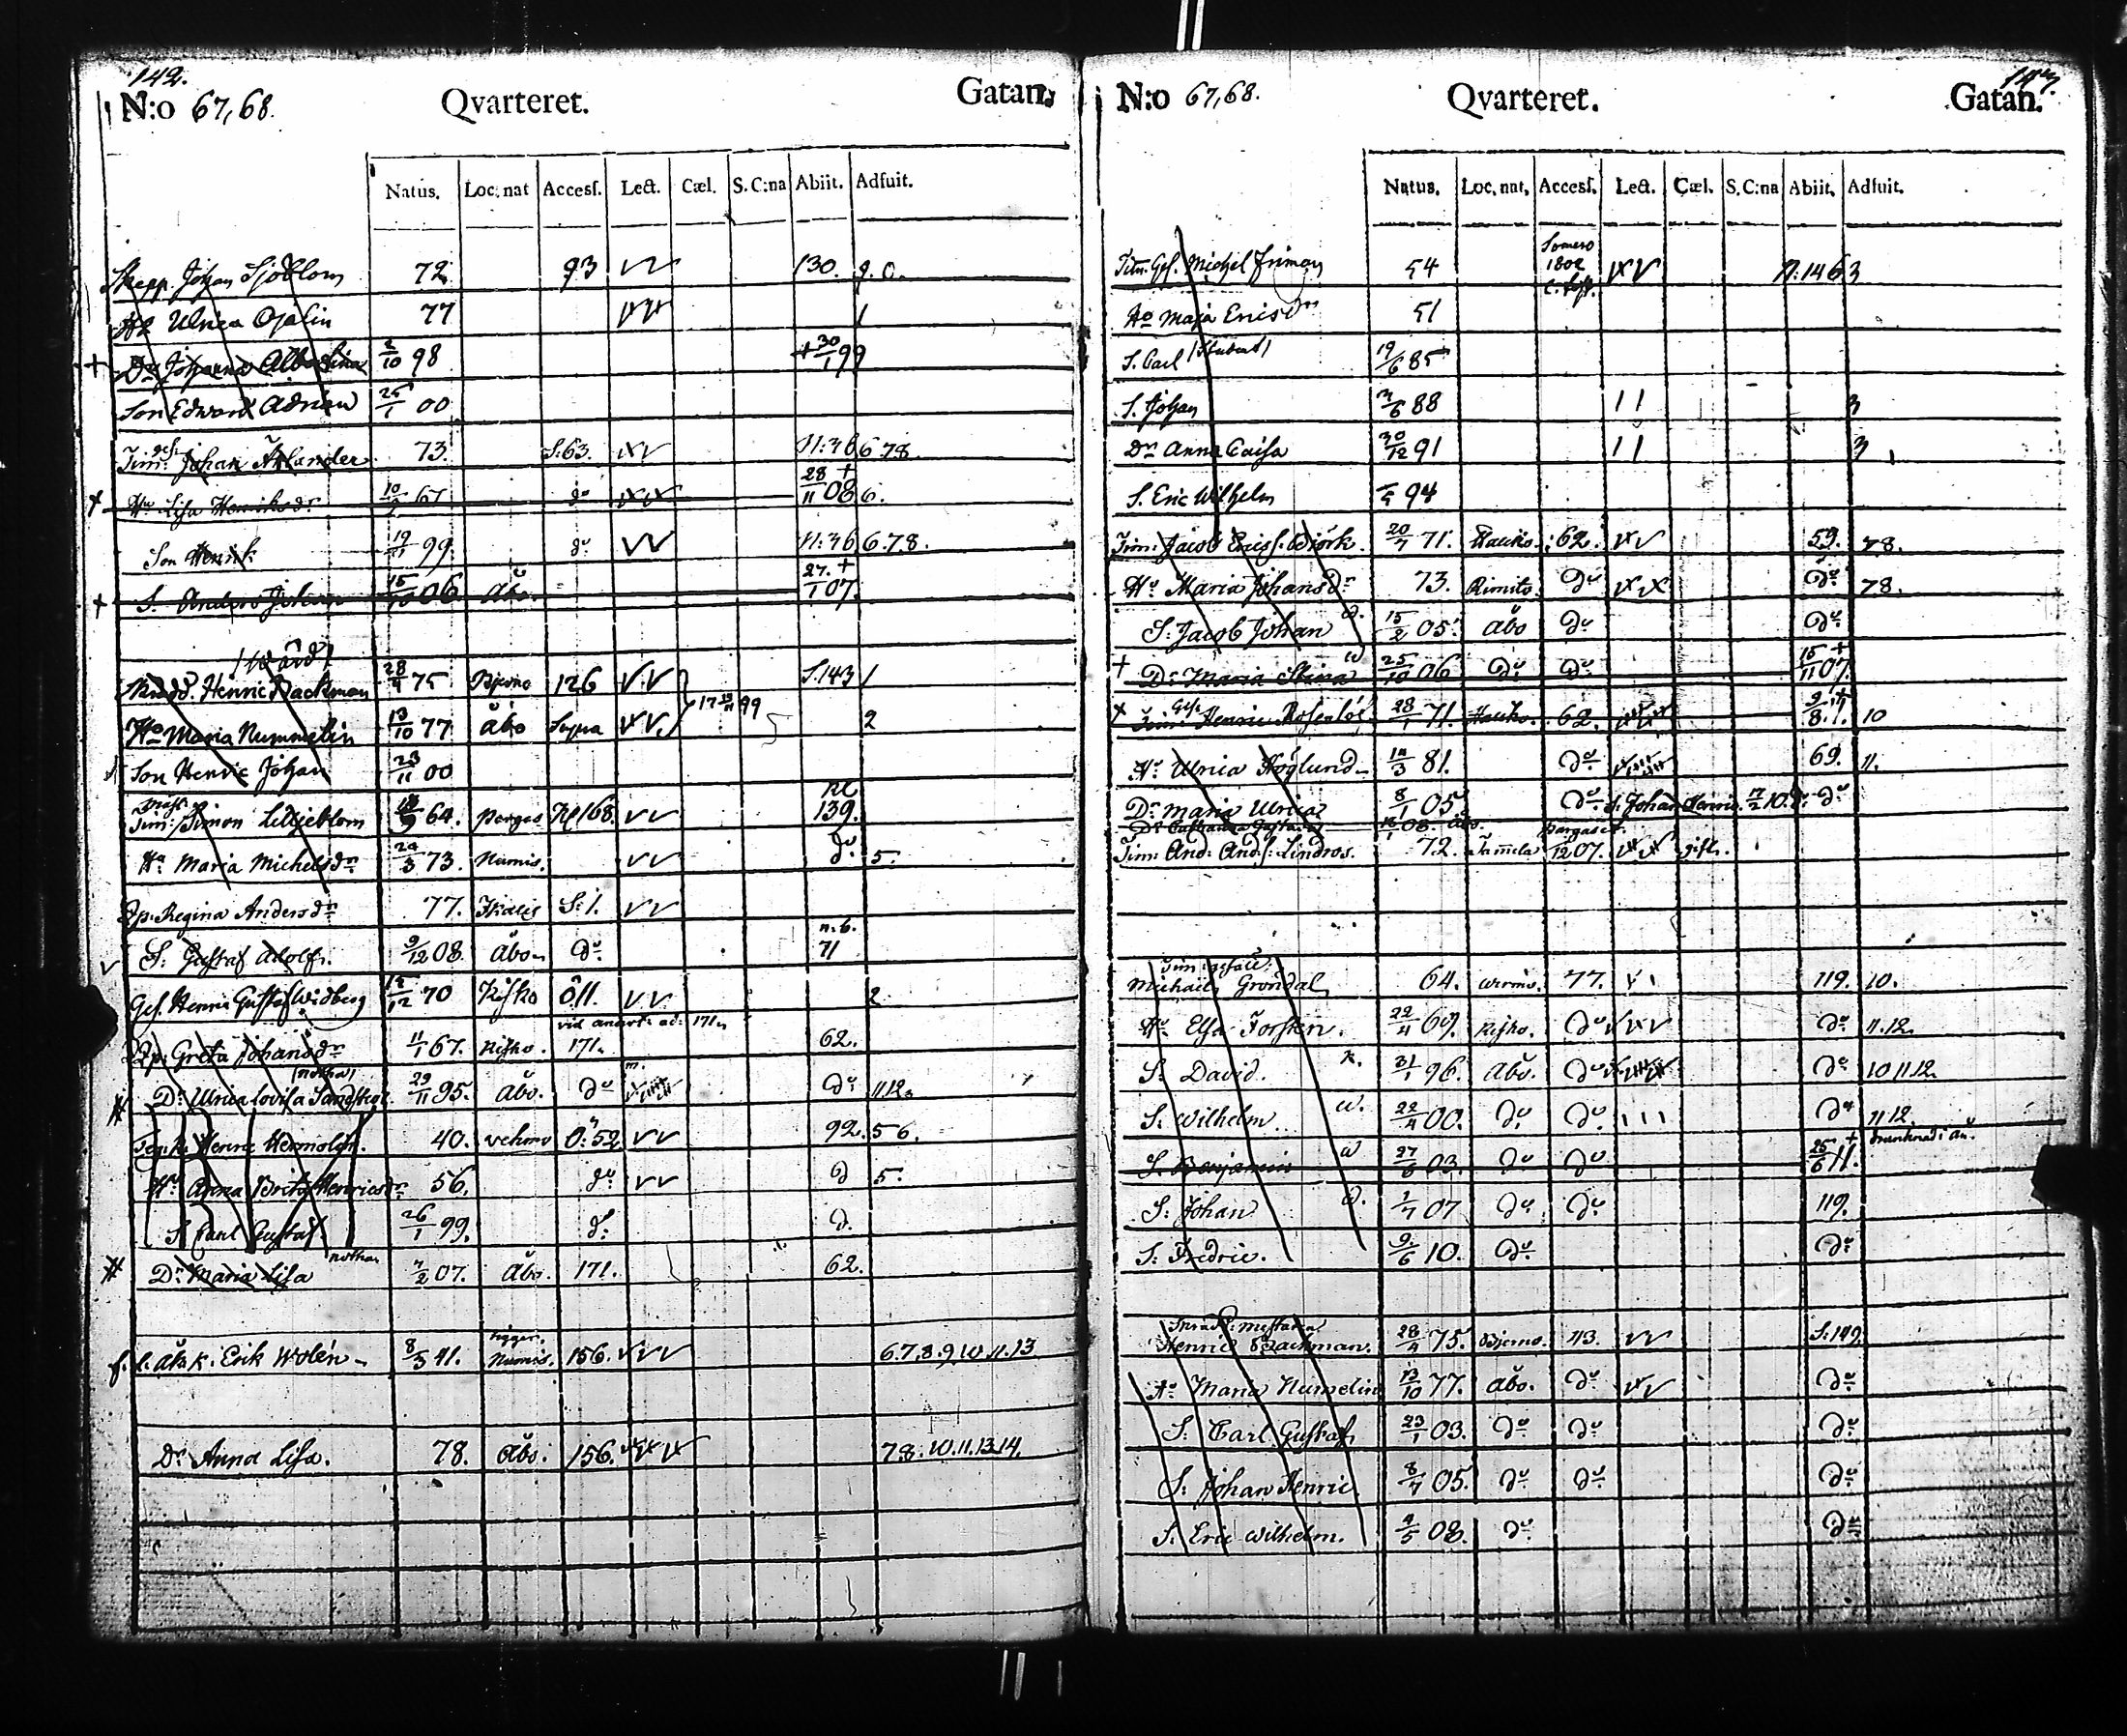 142.
N:o 67,68. Qvarteret. Gatan.
Natus. Loc. nat Accesſ. Lect. Cæl. S. C:na Abiit. Adfuit.
Skepp. Johan Sjöblom 72 93 130. 9. 0.
H Ulrica Ojalin 77 1
+ Dr Johanna Albertina 2/10 98 + 30/1 99
Son Edward Adrian 25/1 00
Tim: gesf. Johan Arlander 73. S:63. N:36 678.
+ Hu Lisa Henriksdr 67 do 28/11 + 08 6.
Son Henrik 19/11 99. do N:36 6.7.8.
+ S. Anders Johan 15/10 06 Åbo. 27. + /1 07.
/Wärd/
Skrädd. Henric Backman 28/4 75 Bjerno 126 S.143 1
Ho Maria Nummelin 13/10 77 Åbo Supra 99 2
Son Henric Johan 23/11 00
Tim: Simon Lilljeblom 64. Pargas Kl 168. 139.
Ha Maria Michelsdr 24/3 73. Numis. do 5.
Pp. Regina Andersdr 77. Ikalis S:1.
S: Gustaf Adolf. 9/12 08. Åbo. do n.b. 71
Gesf. Henric Gustaf Widberg 15/12 70 Kisko 0.11. 2
vid ad: 171.
Pp. Greta Johansdr 11/1 67. Kisko. 171. 62.
Dr Ulrica Lovisa (notha) 29/11 95. Åbo. do do 11.12.
Henric Hermolin. 40. Vehmo 0:52 92. 56.
Hu Anna Brita Henricsdr 56. do d 5.
S Carl Gustaf. 26/1 99. do d.
Dr Maria Lisa notha 7/2 07. Åbo. 171. 62.
Erik Wolén 8/3 41. tigger. Numis. 156. 6.7.8.9.10.11.13
Dr Anna Lisa. 78. Åbo. 156. 7.8.10.11.13.14.
143.
N:o 67,68. Qvarteret. Gatan.
Natus. Loc. nat. Accesſ. Lect. Cæl. S. C:na Abiit. Adfuit.
Tim: Gesf. Michel Friman 54 Somero 1802 N:146 3
Ho Maja Ericsdr 51
S. Carl /Student/ 19/6 85
S. Johan /6 88 11 3
Dr Anna Caisa 30/12 91 11 3
S. Eric Wilhelm 94
Tim: Jacob Ericsf. Wiörk. 20/7 71. Hauho. 62. 59. 78.
Hu Maria Johansdr 73. Rimito. do do 78.
S: Jacob Johan 15/2 05. Åbo do do
+ Dr Maria Stina 25/10 06 do do 15/11 + 07.
+ Tim: Gesf. Henric Rosenlöf 28/1 71. Hauho. 62. 10
Hu Ulrica Höglund 14/3 81. do 69. 11.
Dr Maria Ulrica 8/1 05 do S. Johan Henric. 17/2 10. do
Dr Catharina Gustava 08. Åbo.
Tim: And: Andsf: Lindros. 72. Tamela Pargas /12 07. gift.
Tim: gesäll: Michaël Gröndal 64. Wirmo. 77. 119. 10.
Hu Elsa Forsten. 22/4 69. Kisko. do do 11.12.
S: David. K. 31/1 96. Åbo. do do 10 11 12.
S. Wilhelm. w. 22/4 00. do do 111 do 11 12.
S. Benjamin w 27/6 03. do do 25/6 + 11. drunknad i ån.
S. Johan w. 1/7 07 do do 119.
S: Fredric. 9/6 10. do do
Skrädd: mästaren Henric Backman. 28/4 75. Bjerno. 113. S: 149.
Hu Maria Numelin 13/10 77. Åbo. do do
S. Carl Gustaf 23/1 03. do do do
S. Johan Henric 8/7 05. do do do
S. Eric Wilhelm. 4/5 08. do do